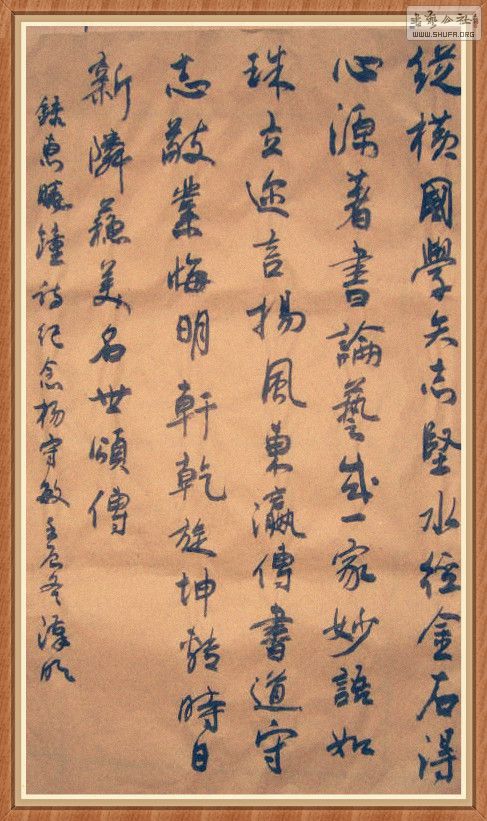 從橫國學矢志堅水經金石得
心源著書論藝成一家妙語如
珠立迩言揚風東瀛傳書道守
志敲業悔明軒乾旋坤轉時日
新隣蘇美名世頌傳
錄惠曉鐘詩纪念杨守敬壬辰冬
书艺公社
WWW.SHUFA.ORG